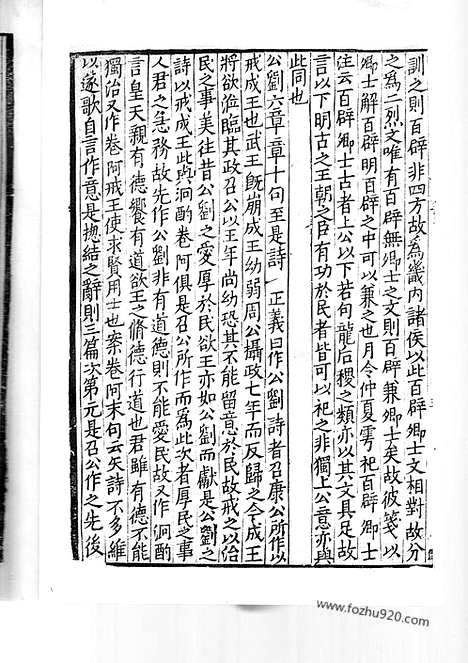 訓之則百辟非四方故為畿内諸侯以此百辟卿士文相對故分
之為二烈文唯有百辟無卿士之文則百辟兼卿士矣故彼箋以
卿士解百辟明百辟之中可以兼之也月令仲夏雩祀百辟卿士
注云百辟卿士古者上公以下若句龍后稷之類亦以其文具足故
言以下明古之王朝之臣有功於民者皆可以祀之非獨上公意亦與
此同也
公劉六章章十句至是詩 正義曰作公劉詩者召康公所作以
戒成王也武王既崩成王幼弱周公攝政七年而反歸之今成王
將欲涖臨其政召公以王年尚幼恐其不能留意於民故戒之以治
民之事美往昔公劉之愛厚於民欲王亦如公劉而獻是公劉之
詩以戒成王此與泂酌卷阿俱是召公所作而為此次者厚民之事
人君之急務故先作公劉非有道德則不能愛民故又作泂酌
言皇天親有德饗有道欲王之脩德行道也君雖有德不能
獨治又作卷阿戒王使求賢用士也案卷阿末句云矢詩不多維
以遂歌自言作意是摠結之辭則三篇次第元是召公作之先後
www.fozhu920.com